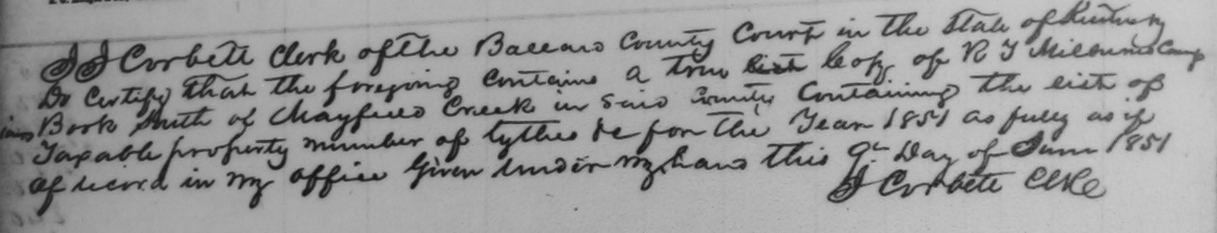 I J Corbett Clerk of the Ballard County Court in the State of Kentucky
Do Certify that the foregoing Contains a true list Copy of R T Milburns Comp
Book South of Mayfield Creek in said County Containing the list of
Taxable property number of tythes &c for the Year 1851 as fully as if
of record in my office Given under my hand this 9th Day of June 1851
J Corbett Clk